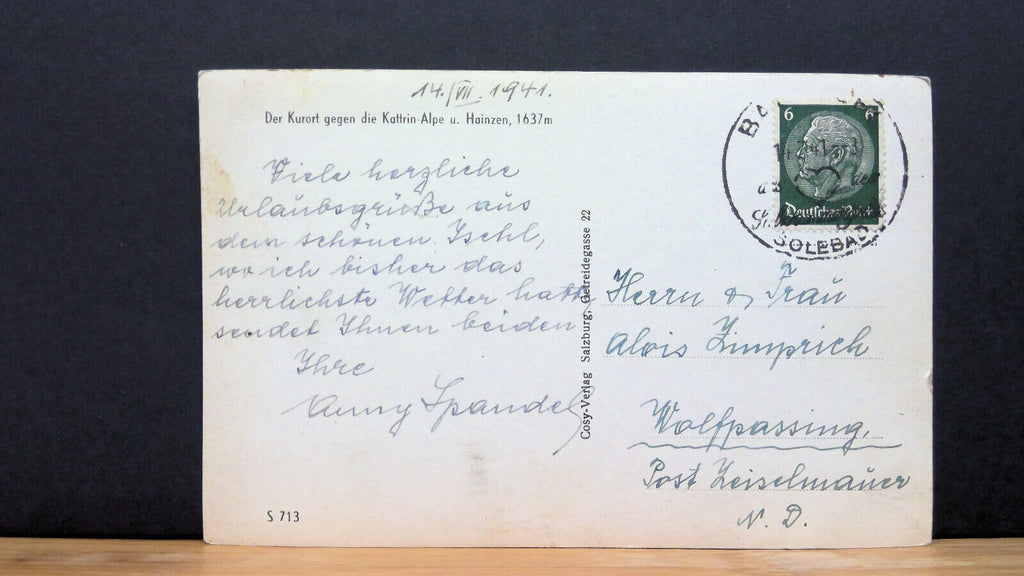 14./VII. 1941.
Der Kurort gegen die Kattrin-Alpe u. Hainzen, 1637m
Viele herzliche
Urlaubsgrüße aus
dem schönen Ischl,
wo ich bisher das
herrlichste Wetter hatte
sendet Ihnen beiden
Ihre
Anny Spandel
S 713
Cosy-Verlag Salzburg, Getreidegasse 22
6 6
Deutsches Reich
SOLEBAD
Herrn & Frau
Alois Zimprich
Wolfpassing,
Post Zeiselmauer
N. D.